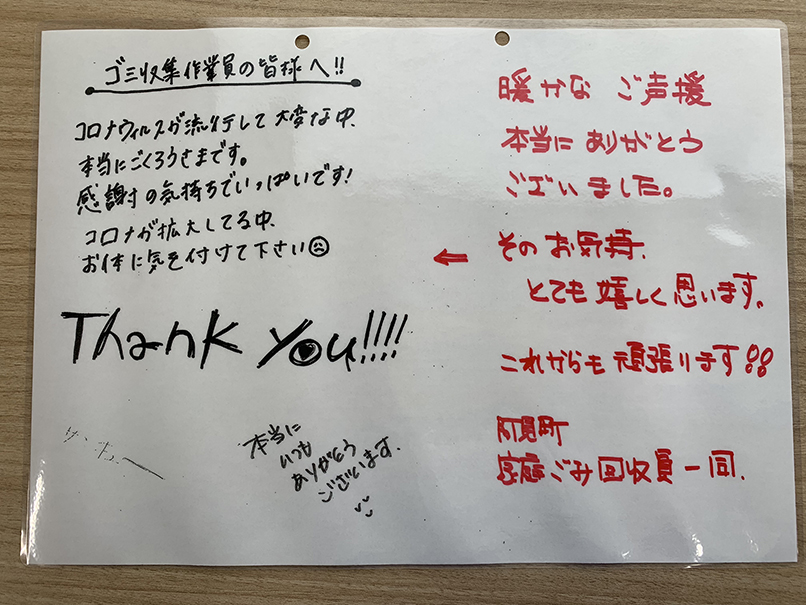 ゴミ収集作業員の皆様へ!!
コロナウィルスが流行して大変な中、
本当にごくろうさまです。
感謝の気持ちでいっぱいです!
コロナが拡大してる中、
お体に気を付けて下さい
Thank you!!!!
サンキュー
本当に
いつも
ありがとう
ございます。
暖かな ご声援
本当に ありがとう
ございました。
← そのお気持、
とても嬉しく思います。
これからも 頑張ります!!
家庭ごみ回収員一同、